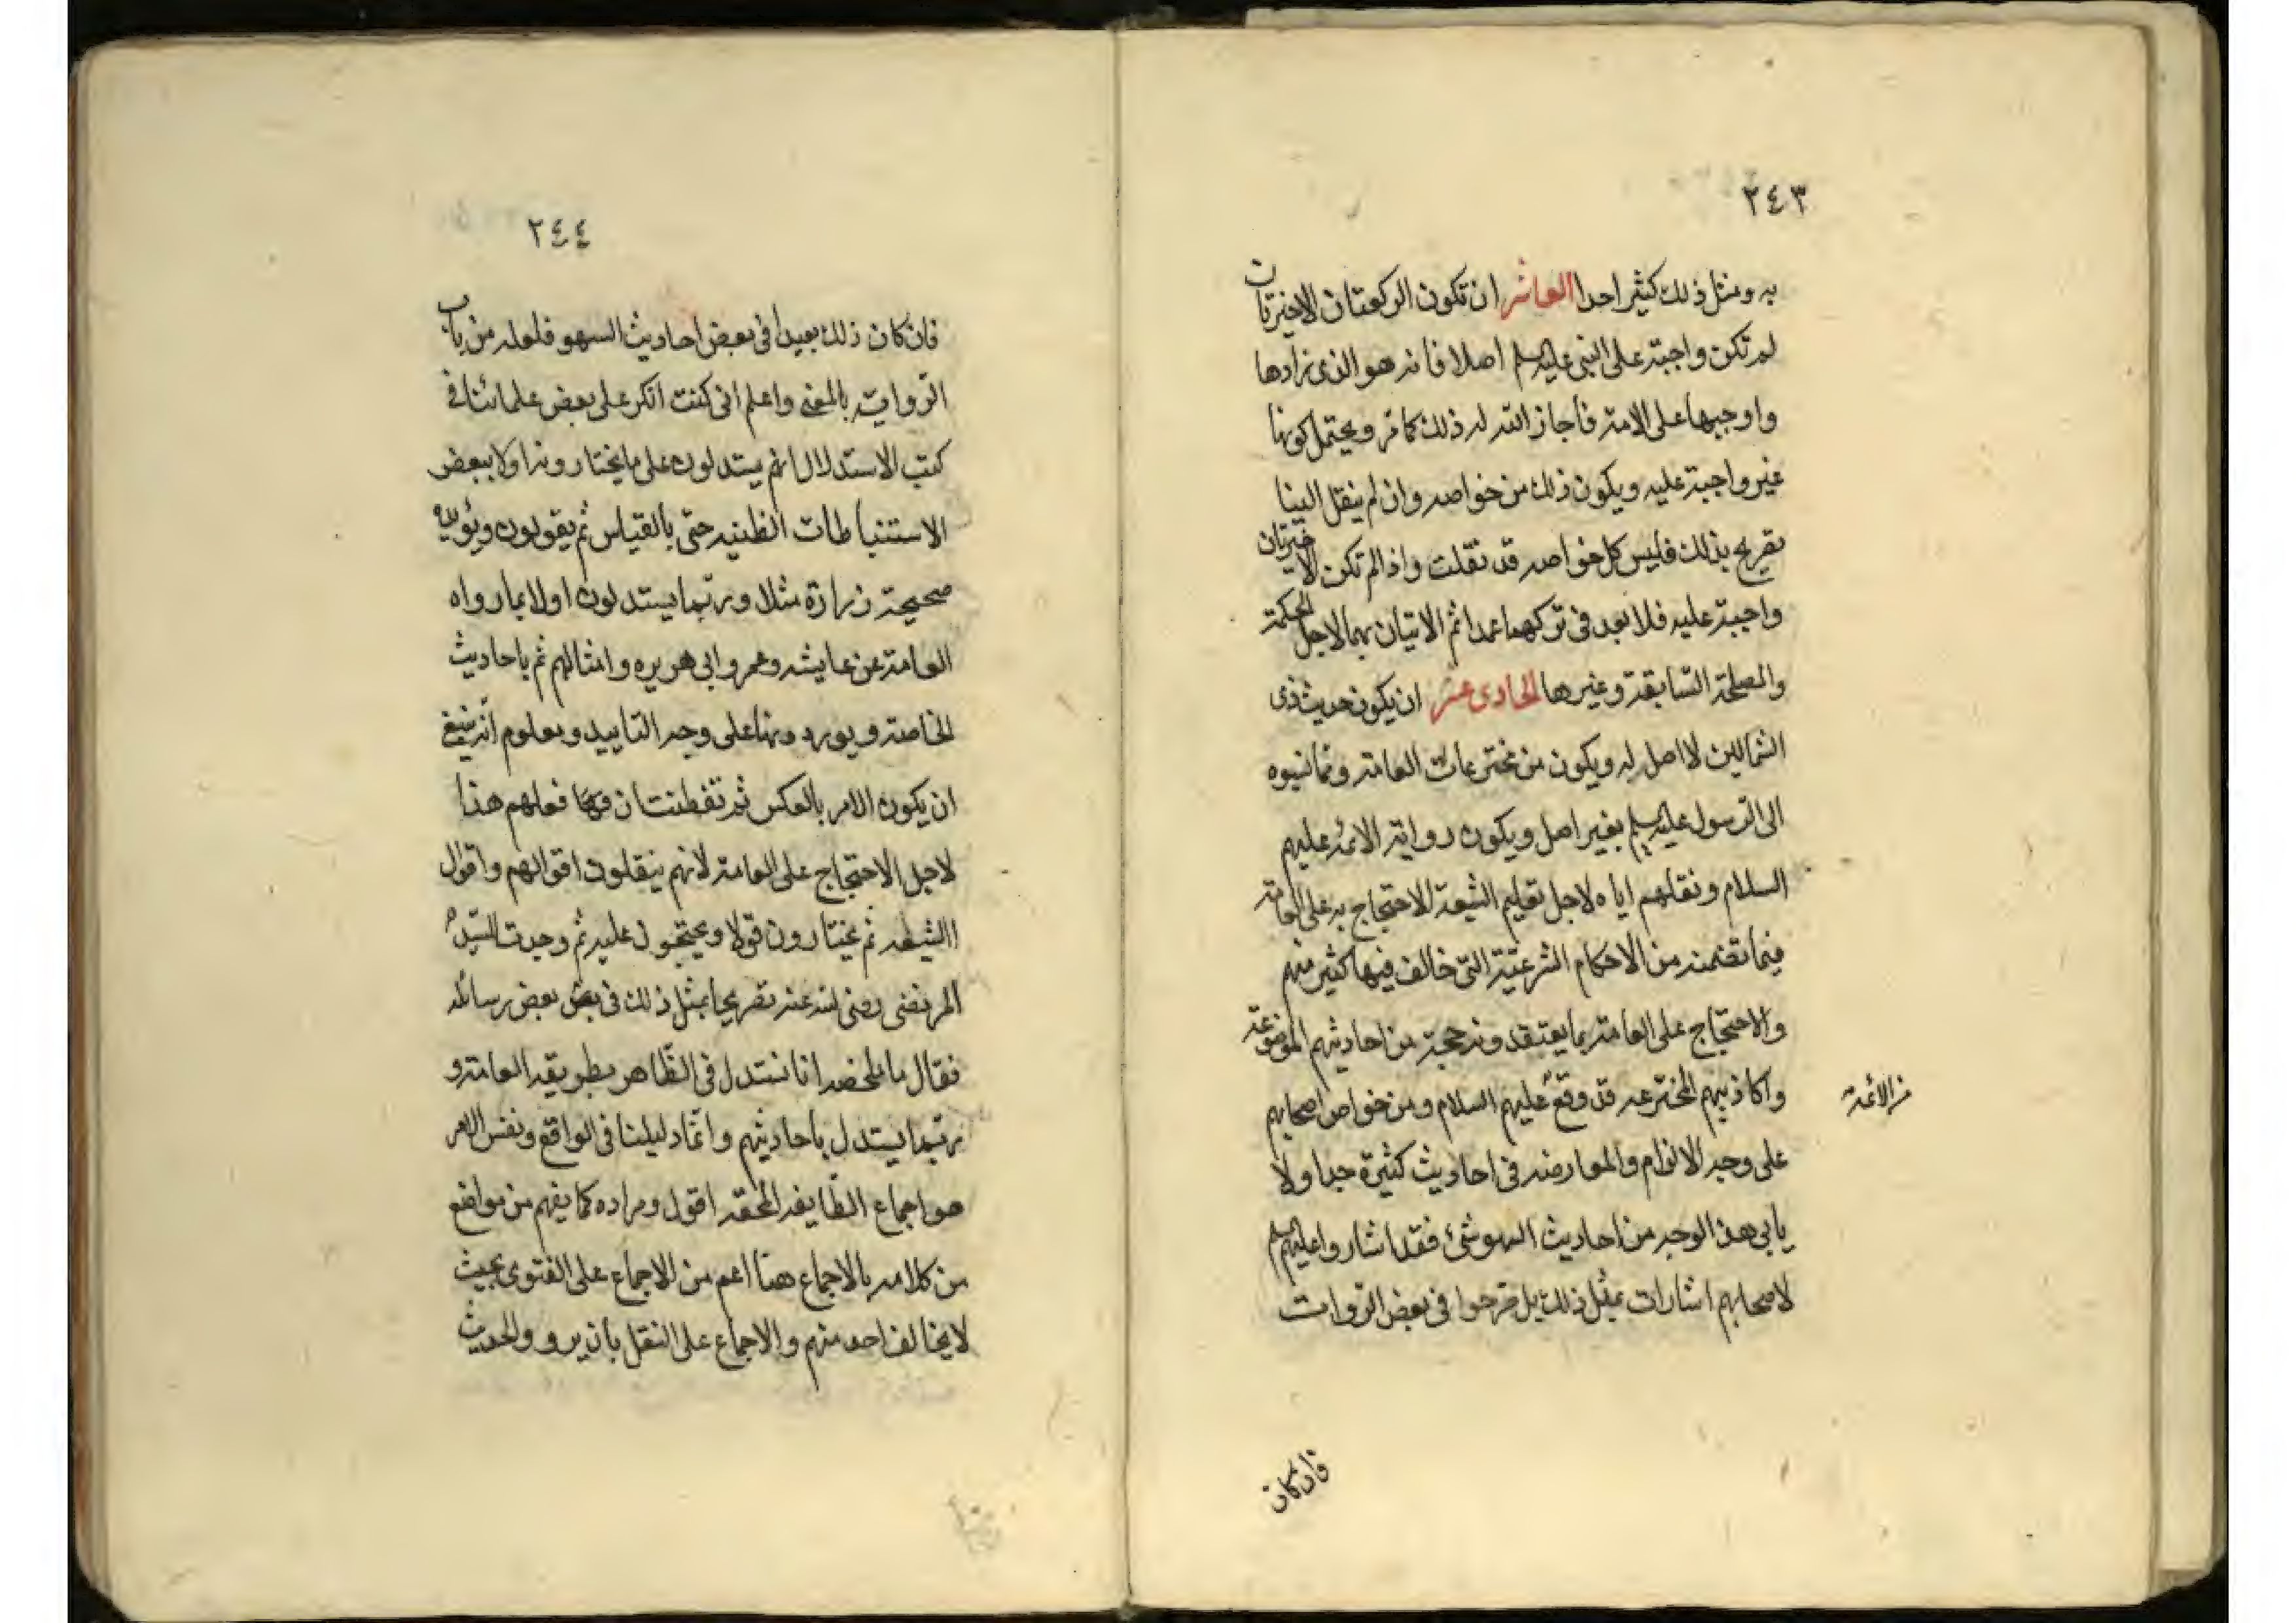 ٢٤٣
به ومثل ذلك كثير احدا العاشر ان تكون الركعتان الاخيرتان
لم تكن واجبة على النبي عليه السلم اصلا فانه هو الذى زادها
واوجبها على الامة فأجاز الله له ذلك كما مر ويحتمل كونها
غير واجبة عليه ويكون ذلك من خواصه وان لم ينقل الينا
تصريح بذلك فليس كل خواصه قد نقلت واذا لم تكن الاخيرتان
واجبة عليه فلا بعد فى تركهما عمدا ثم الاتيان بهما لاجل الحكمة
والمصلحة السّابقة وغيرها الحادى عشر ان يكون حديث ذى
الشمالين لا اصل له ويكون من مخترعات العامة ومما نسبوه
الى الرّسول عليه السلم بغير اصل ويكون رواية الائمة عليهم
السلام ونقلهم اياه لاجل تعليم الشيعة للاحتجاج به على العامة
فيما تضمنه من الاحكام الشرعيّة التى خالف فيها كثير منهم
والاحتجاج على العامة بما يعتقدونه حجة من احاديثهم الموضوعة
واكاذيبهم المخترعه قد وقع عليهم السلام ومن خواص اصحابهم
من الائمة
على وجه الالزام والمعارضه فى احاديث كثيرة جدا ولا
يابى هذا الوجه من احاديث السهو شئ فقد اشاروا عليهم السلم
لاصحابهم اشارات بمثل ذلك بل صرحوا فى بعض الرّوايات
فان كان
٢٤٤
فان كان ذلك بعيدا فى بعض احاديث السهو فلعله من باب
الرّواية بالمعنى واعلم انى كنت انكر على بعض علمائنا فى
كتب الاستدلال انهم يستدلون على ما يختارونه اولا ببعض
الاستنباطات الظنيه حتى بالقياس ثم يقولون ويؤيده
صحيحة زرارة مثلا وربّما يستدلون اولا بما رواه
العامة عن عايشه وعمر وابى هريره وامثالهم ثم باحاديث
الخاصة ويوردونها على وجه التاييد ومعلوم انّه ينبغى
ان يكون الامر بالعكس ثم تفطنت ان فعلهم هذا
لاجل الاحتجاج على العامة لانهم ينقلون اقوالهم واقوال
االشيعه ثم يختارون قولا ويحتجون عليه ثم وجدت للسيّد
المرتضى رضى الله عنه تصريحا بمثل ذلك فى بعض بعض رسائله
فقال ما ملخصه انا نستدل فى الظّاهر بطريقه العامة و
ربّما يستدل باحاديثهم وانّما دليلنا فى الواقع ونفس الامر
هو اجماع الطّايفه المحقه اقول ومراده كما يفهم من مواضع
من كلامه بالاجماع هنا اعم من الاجماع على الفتوى بحيث
لا يخالف احد منهم والاجماع على النقل بان يرووا الحديث